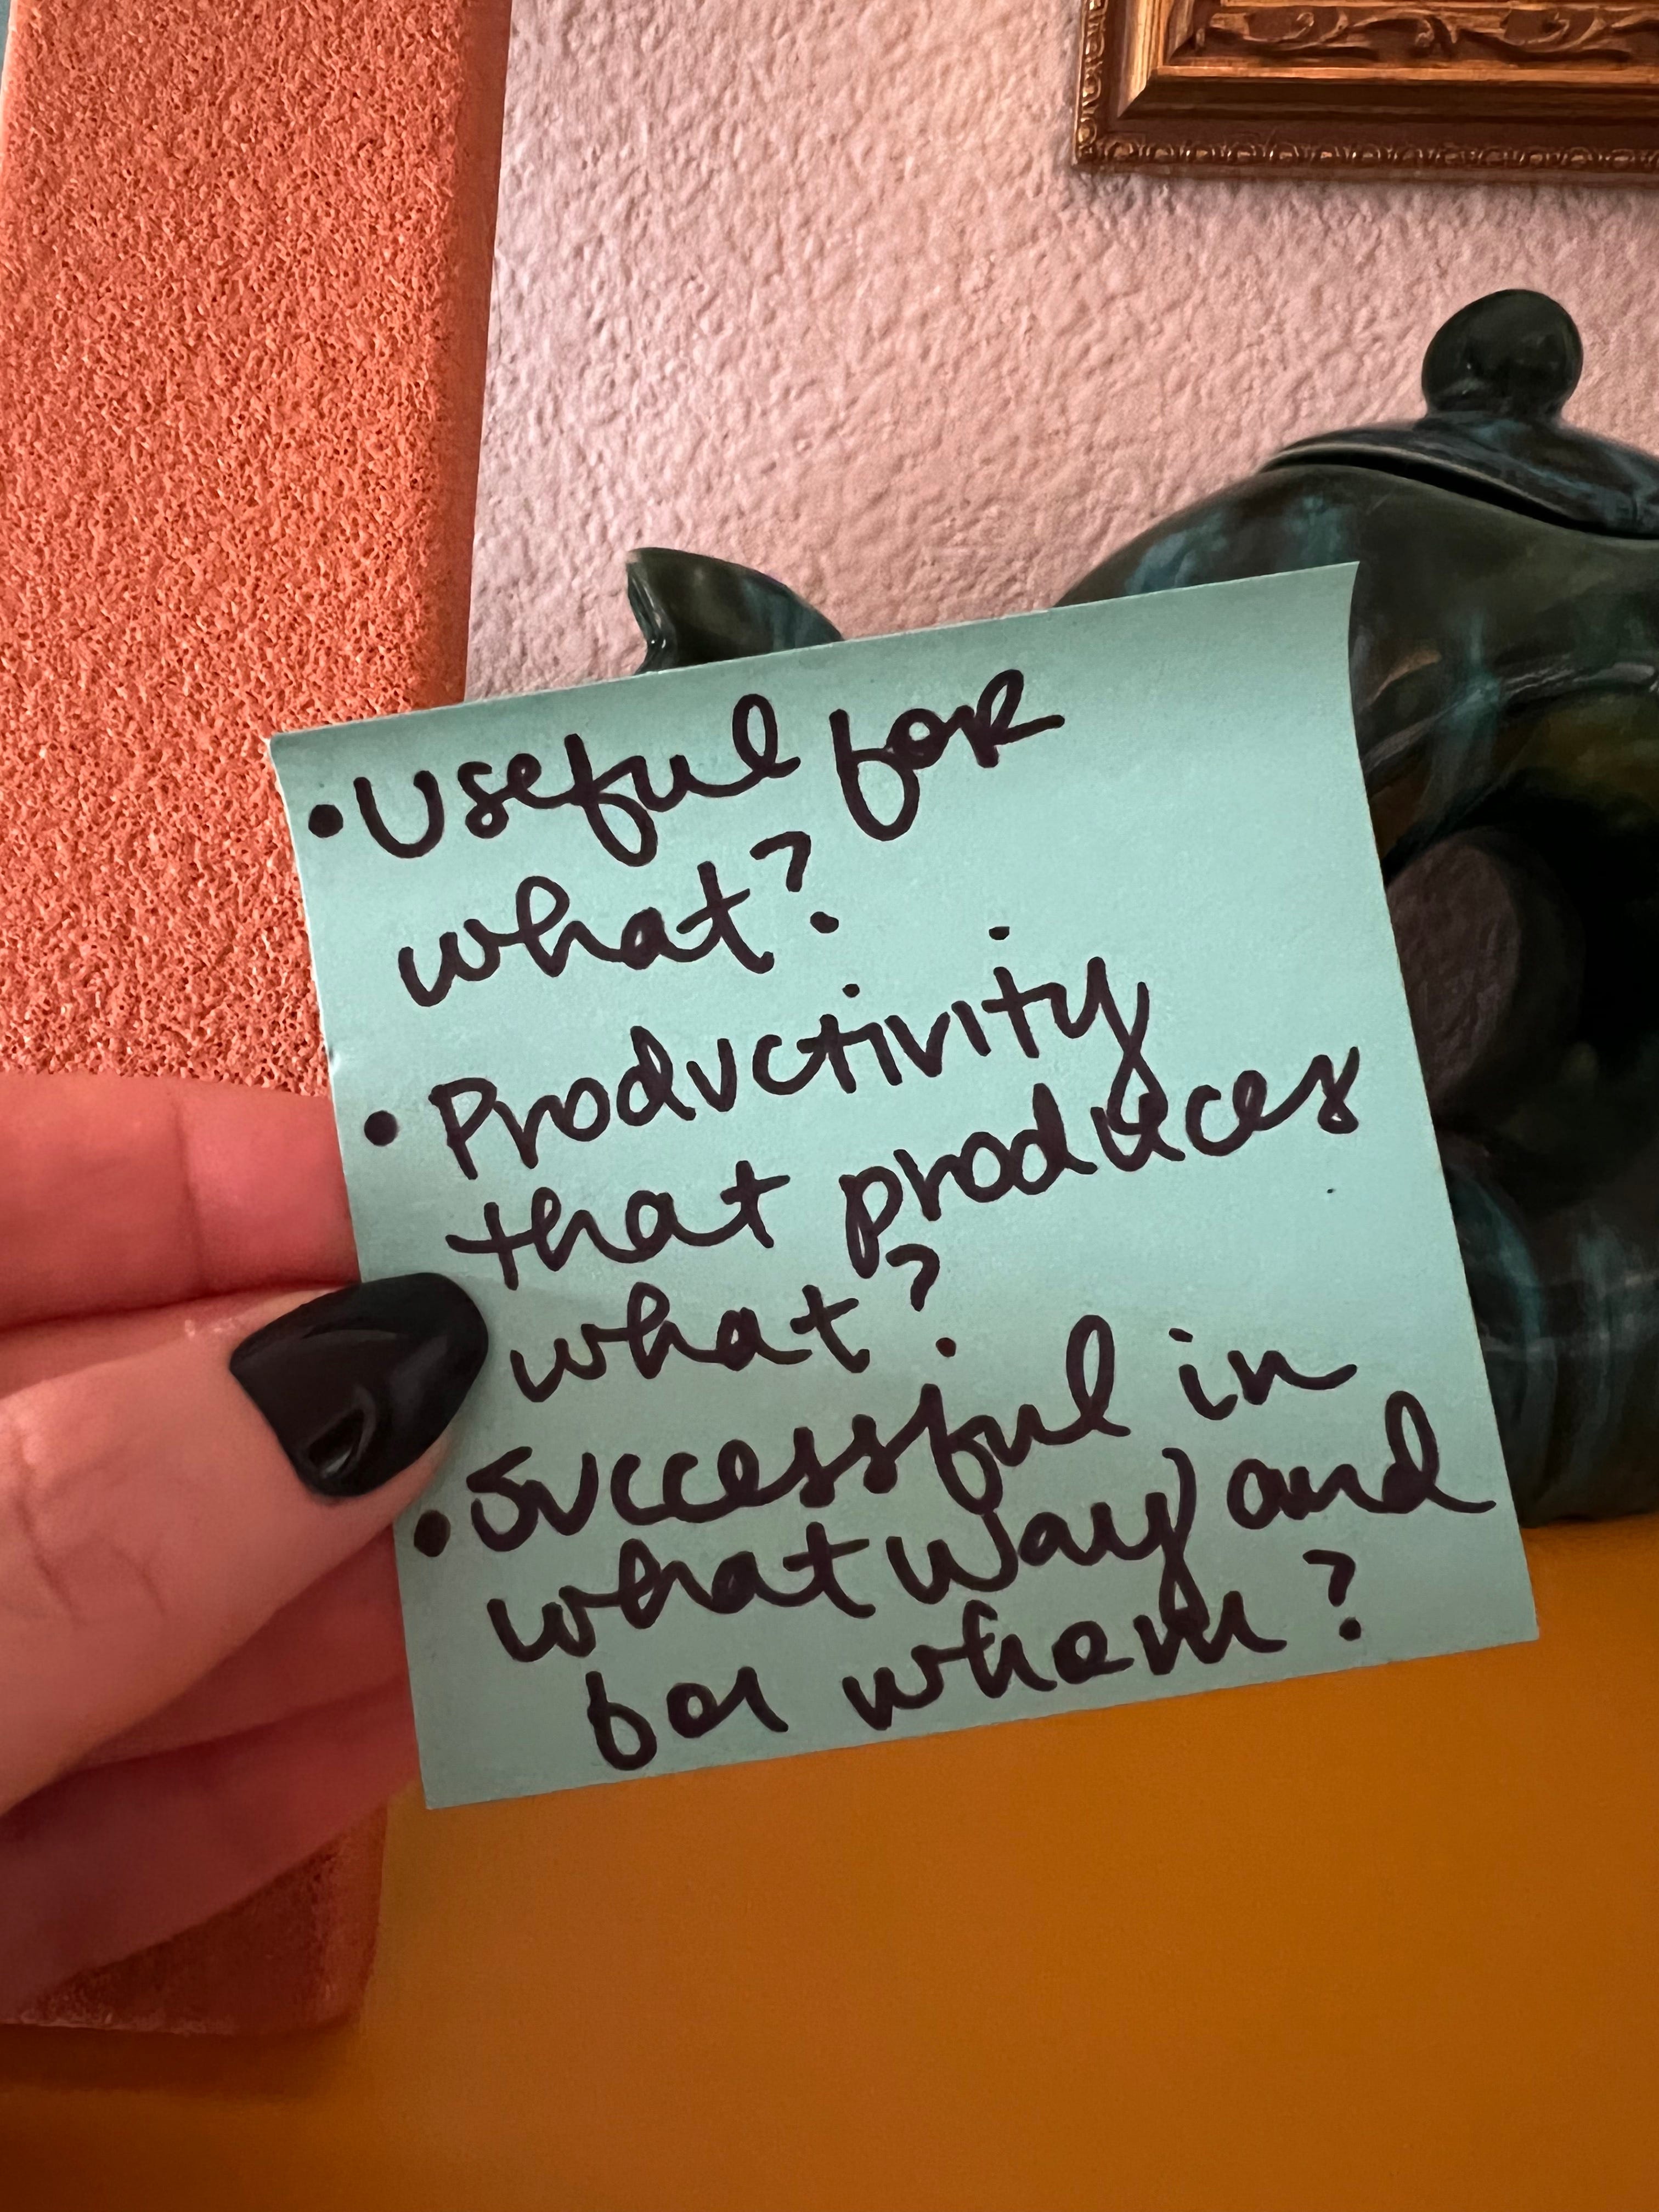 • Useful for
what?
• Productivity
that produces
what?
• Successful in
what way and
for whom?